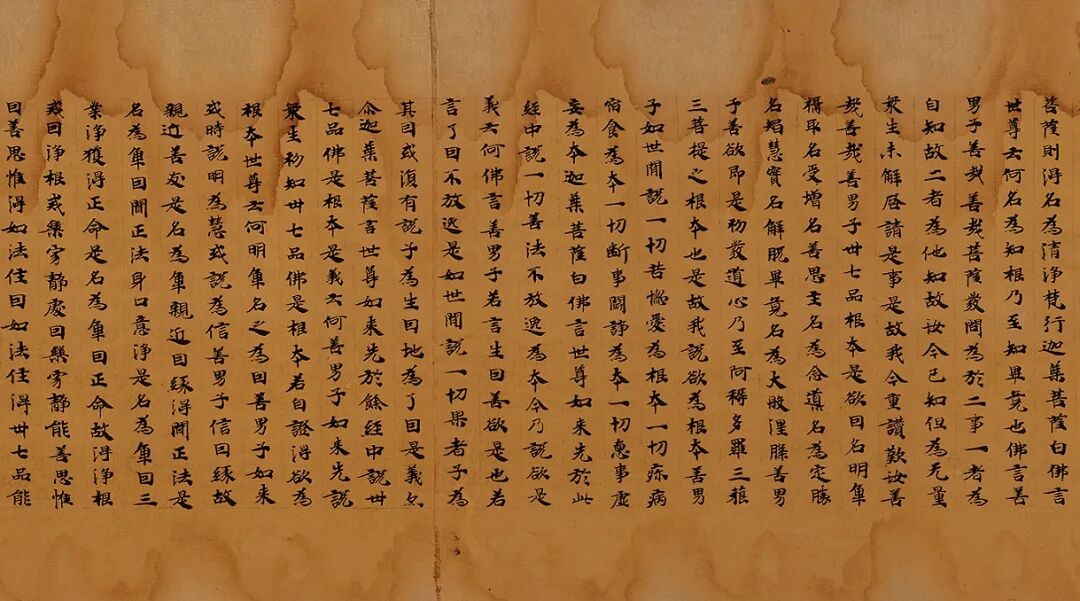 菩薩則得名為清淨梵行迦葉菩薩白佛言
世尊云何名為知根乃至知畢竟也佛言善
男子善哉善哉菩薩發問為於二事一者為
自知故二者為他知故汝今已知但為无量
衆生未解啓請是事是故我今重讃歎汝善
哉善哉善男子卅七品根本是欲因名明觸
攝取名受增名善思主名為念導名為定勝
名智慧實名解脫畢竟名為大般涅槃善男
子善欲即是初發道心乃至阿耨多羅三藐
三菩提之根本也是故我說欲為根本善男
子如世間說一切苦惱愛為根本一切疾病
宿食為本一切斷事鬪諍為本一切惡事虛
妄為本迦葉菩薩白佛言世尊如來先於此
經中說一切善法不放逸為本今乃說欲是
義云何佛言善男子若言生因善欲是也若
言了因不放逸是如世間說一切果者子為
其因或復有說子為生因地為了因是義亦
尒迦葉菩薩言世尊如來先於餘經中說卅
七品佛是根本是義云何善男子如來先說
衆生初知卅七品佛是根本若自證得欲為
根本世尊云何明觸名之為因善男子如來
或時說明為慧或說為信善男子信因緣故
親近善友是名為觸親近因緣得聞正法是
名為觸因聞正法身口意淨是名為觸因三
業淨獲得正命是名為觸因正命故得淨根
戒因淨根戒樂寂靜處因樂寂靜能善思惟
因善思惟得如法住因如法住得卅七品能